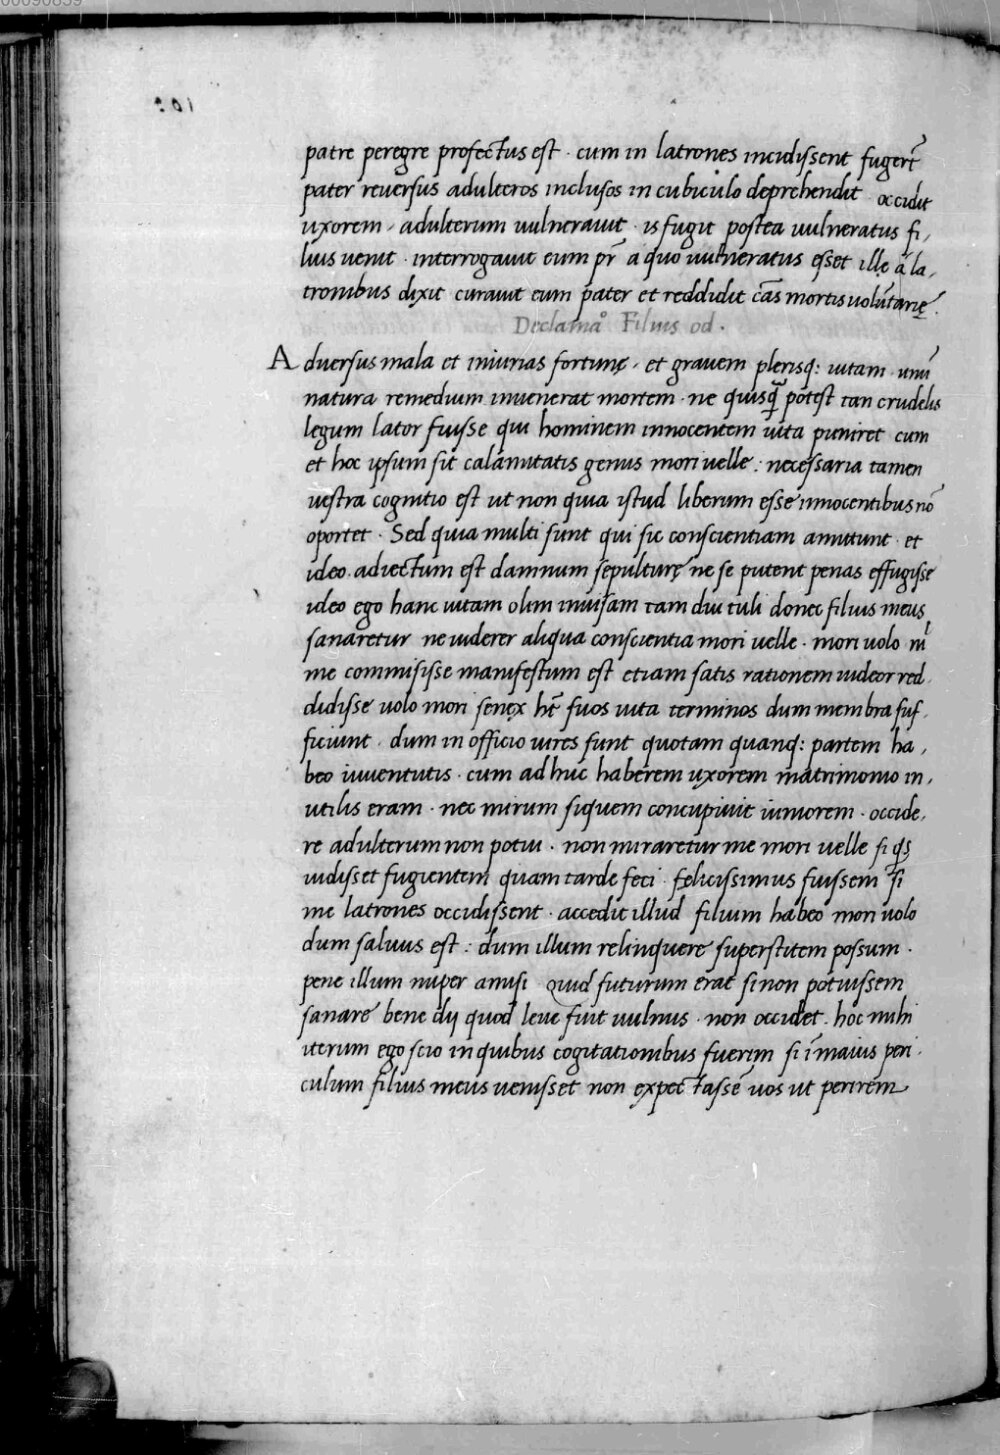 00090859
patre peregre profectus est · cum in latrones incidissent fugerṫ
pater reuersus adulteros inclusos in cubiculo deprehendit occidit
uxorem , adulterum uulnerauit · is fugit postea uulneratus fi,
lius uenit · interrogauit eum pr̄ a quo uulneratus esset ille á la,
tronibus dixit curauit eum pater et reddidit cās mortis uolūtarię .
Declamaº Filius od .
A duersus mala et iniurias fortunę , et grauem plerisq: uitam unū
natura remedium inuenerat mortem · ne quisq̄ potest tan crudelis
legum lator fuisse qui hominem innocentem uita puniret cum
et hoc ipsum sit calamitatis genus mori uelle : necessaria tamen
uestra cognitio est ut non quia istud liberum esse innocentibus nō
oportet · Sed quia multi sunt qui sic conscientiam amittunt · et
ideo adiectum est damnum sepulturę ne se putent penas effugisse
ideo ego hanc uitam olim inuisam tam diu tuli donec filius meus
sanaretur ne uiderer aliqua conscientia mori uelle · mori uolo nͥ
me commisisse manifestum est etiam satis rationem uideor red
didisse uolo mori senex hť suos uita terminos dum membra suf,
ficiunt · dum in officio uires sunt quotam quanq: partem ha,
beo iuuentutis · cum ad huc haberem uxorem matrimonio in,
utilis eram · nec mirum siquem concupiuit iuniorem · occide,
re adulterum non potui · non miraretur me mori uelle si q̇s
uidisset fugientem quam tarde feci · felicissimus fuissem si
me latrones occidissent · accedit illud filium habeo mori uolo
dum saluus est : dum illum relinquere superstitem possum ·
pene illum nuper amisi Quid futurum erat si non potuissem
sanare bene dij quod leue fuit uulnus · non occidet . hoc mihi
iterum ego scio in quibus cogitationibus fuerim si ī maius peri,
culum filius meus uenisset non expectassē uos ut perirem